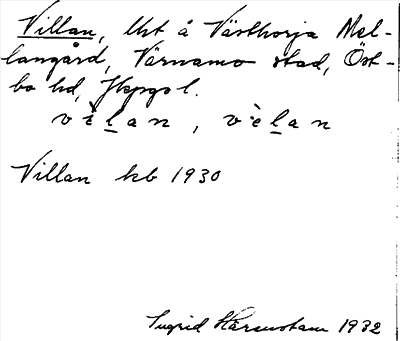 Villan, lht å Västhorja Mel-
langård, Värnamo stad, Öst-
bo hd, Jkpgs l.
vèlan, vèlan
Villan kb 1930
Ingrid 1932